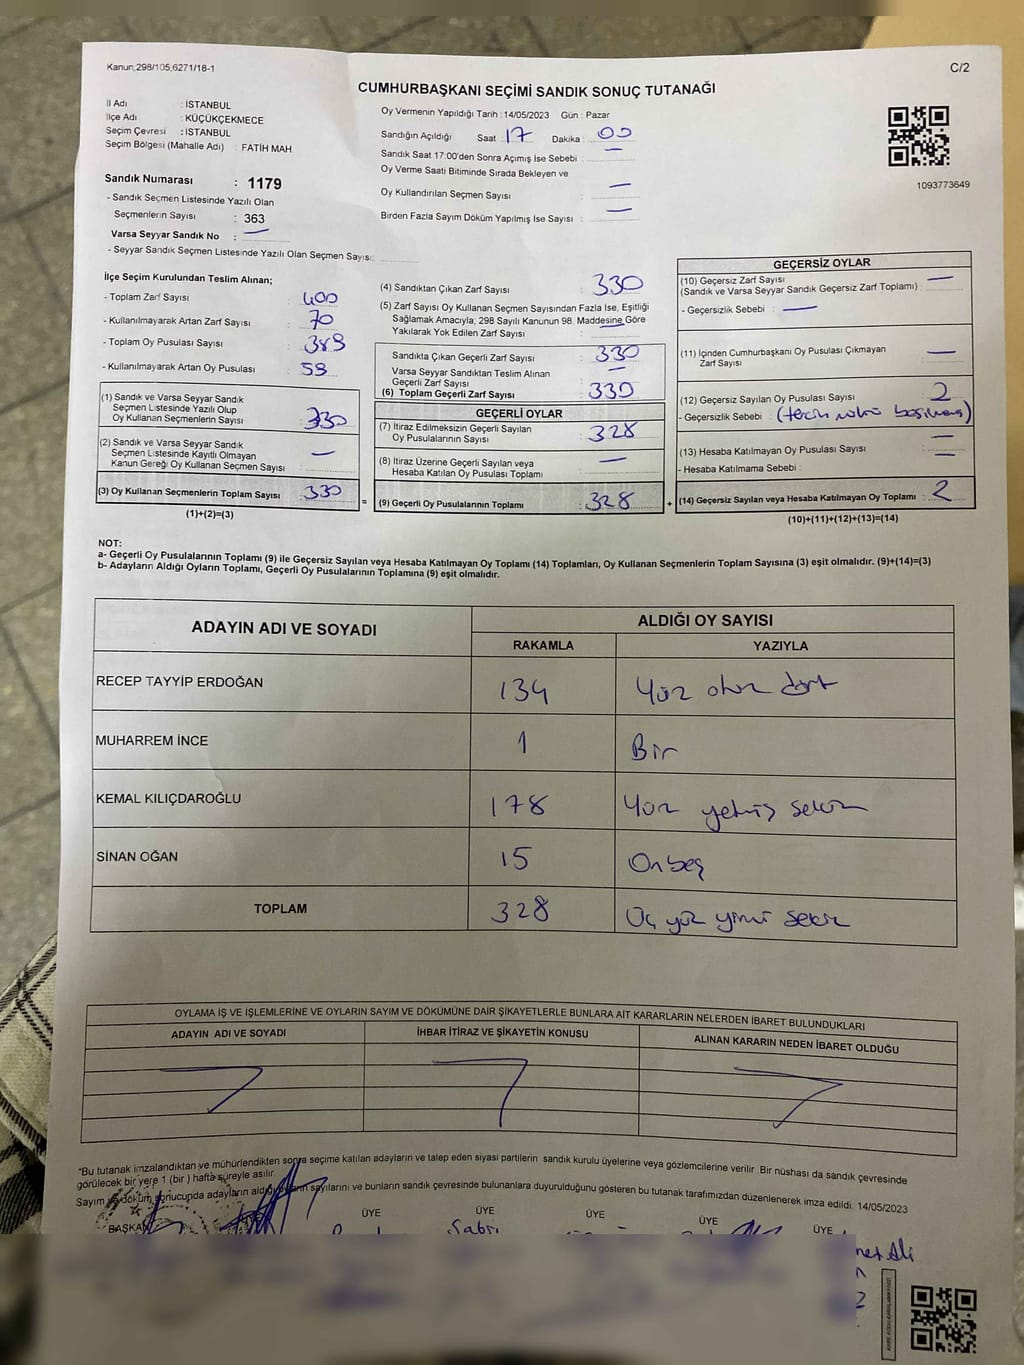 Kanun,298/105,6271/18-1
C/2
CUMHURBAŞKANI SEÇİMİ SANDIK SONUÇ TUTANAĞI
İl Adı : İSTANBUL
İlçe Adı : KÜÇÜKÇEKMECE
Seçim Çevresi : İSTANBUL
Seçim Bölgesi (Mahalle Adı) : FATİH MAH
Sandık Numarası : 1179
- Sandık Seçmen Listesinde Yazılı Olan
Seçmenlerin Sayısı : 363
Varsa Seyyar Sandık No : —
- Seyyar Sandık Seçmen Listesinde Yazılı Olan Seçmen Sayısı:
Oy Vermenin Yapıldığı Tarih : 14/05/2023 Gün : Pazar
Sandığın Açıldığı Saat : 17 Dakika : 00
Sandık Saat 17:00'den Sonra Açımış İse Sebebi : —
Oy Verme Saati Bitiminde Sırada Bekleyen ve
Oy Kullandırılan Seçmen Sayısı : —
Birden Fazla Sayım Döküm Yapılmış İse Sayısı : —
1093773649
İlçe Seçim Kurulundan Teslim Alınan;
- Toplam Zarf Sayısı : 400
- Kullanılmayarak Artan Zarf Sayısı : 70
- Toplam Oy Pusulası Sayısı : 389
- Kullanılmayarak Artan Oy Pusulası : 59
(1) Sandık ve Varsa Seyyar Sandık
Seçmen Listesinde Yazılı Olup
Oy Kullanan Seçmenlerin Sayısı : 330
(2) Sandık ve Varsa Seyyar Sandık
Seçmen Listesinde Kayıtlı Olmayan
Kanun Gereği Oy Kullanan Seçmen Sayısı : —
(3) Oy Kullanan Seçmenlerin Toplam Sayısı : 330
(1)+(2)=(3)
=
(4) Sandıktan Çıkan Zarf Sayısı : 330
(5) Zarf Sayısı Oy Kullanan Seçmen Sayısından Fazla İse, Eşitliği
Sağlamak Amacıyla; 298 Sayılı Kanunun 98. Maddesine Göre
Yakılarak Yok Edilen Zarf Sayısı : —
Sandıkta Çıkan Geçerli Zarf Sayısı : 330
Varsa Seyyar Sandıktan Teslim Alınan
Geçerli Zarf Sayısı : —
(6) Toplam Geçerli Zarf Sayısı : 330
GEÇERLİ OYLAR
(7) İtiraz Edilmeksizin Geçerli Sayılan
Oy Pusulalarının Sayısı : 328
(8) İtiraz Üzerine Geçerli Sayılan veya
Hesaba Katılan Oy Pusulası Toplamı : —
(9) Geçerli Oy Pusulalarının Toplamı : 328
+
GEÇERSİZ OYLAR
(10) Geçersiz Zarf Sayısı
(Sandık ve Varsa Seyyar Sandık Geçersiz Zarf Toplamı) : —
- Geçersizlik Sebebi : —
(11) İçinden Cumhurbaşkanı Oy Pusulası Çıkmayan
Zarf Sayısı : —
(12) Geçersiz Sayılan Oy Pusulası Sayısı : 2
- Geçersizlik Sebebi : (tercih mührü basılmamış)
(13) Hesaba Katılmayan Oy Pusulası Sayısı : —
- Hesaba Katılmama Sebebi : —
(14) Geçersiz Sayılan veya Hesaba Katılmayan Oy Toplamı : 2
(10)+(11)+(12)+(13)=(14)
NOT:
a- Geçerli Oy Pusulalarının Toplamı (9) ile Geçersiz Sayılan veya Hesaba Katılmayan Oy Toplamı (14) Toplamları, Oy Kullanan Seçmenlerin Toplam Sayısına (3) eşit olmalıdır. (9)+(14)=(3)
b- Adayların Aldığı Oyların Toplamı, Geçerli Oy Pusulalarının Toplamına (9) eşit olmalıdır.
ADAYIN ADI VE SOYADI
ALDIĞI OY SAYISI
RAKAMLA YAZIYLA
RECEP TAYYİP ERDOĞAN 134 Yüz otuz dört
MUHARREM İNCE 1 Bir
KEMAL KILIÇDAROĞLU 178 Yüz yetmiş sekiz
SİNAN OĞAN 15 Onbeş
TOPLAM 328 Üç yüz yirmi sekiz
OYLAMA İŞ VE İŞLEMLERİNE VE OYLARIN SAYIM VE DÖKÜMÜNE DAİR ŞİKAYETLERLE BUNLARA AİT KARARLARIN NELERDEN İBARET BULUNDUKLARI
ADAYIN ADI VE SOYADI İHBAR İTİRAZ VE ŞİKAYETİN KONUSU ALINAN KARARIN NEDEN İBARET OLDUĞU
*Bu tutanak imzalandıktan ve mühürlendikten sonra seçime katılan adayların ve talep eden siyasi partilerin sandık kurulu üyelerine veya gözlemcilerine verilir. Bir nüshası da sandık çevresinde
görülecek bir yere 1 (bir) hafta süreyle asılır.
Sayım ve döküm sonucunda adayların aldığı oyların sayılarını ve bunların sandık çevresinde bulunanlara duyurulduğunu gösteren bu tutanak tarafımızdan düzenlenerek imza edildi. 14/05/2023
BAŞKAN ÜYE ÜYE ÜYE ÜYE ÜYE
Sabri
Ali